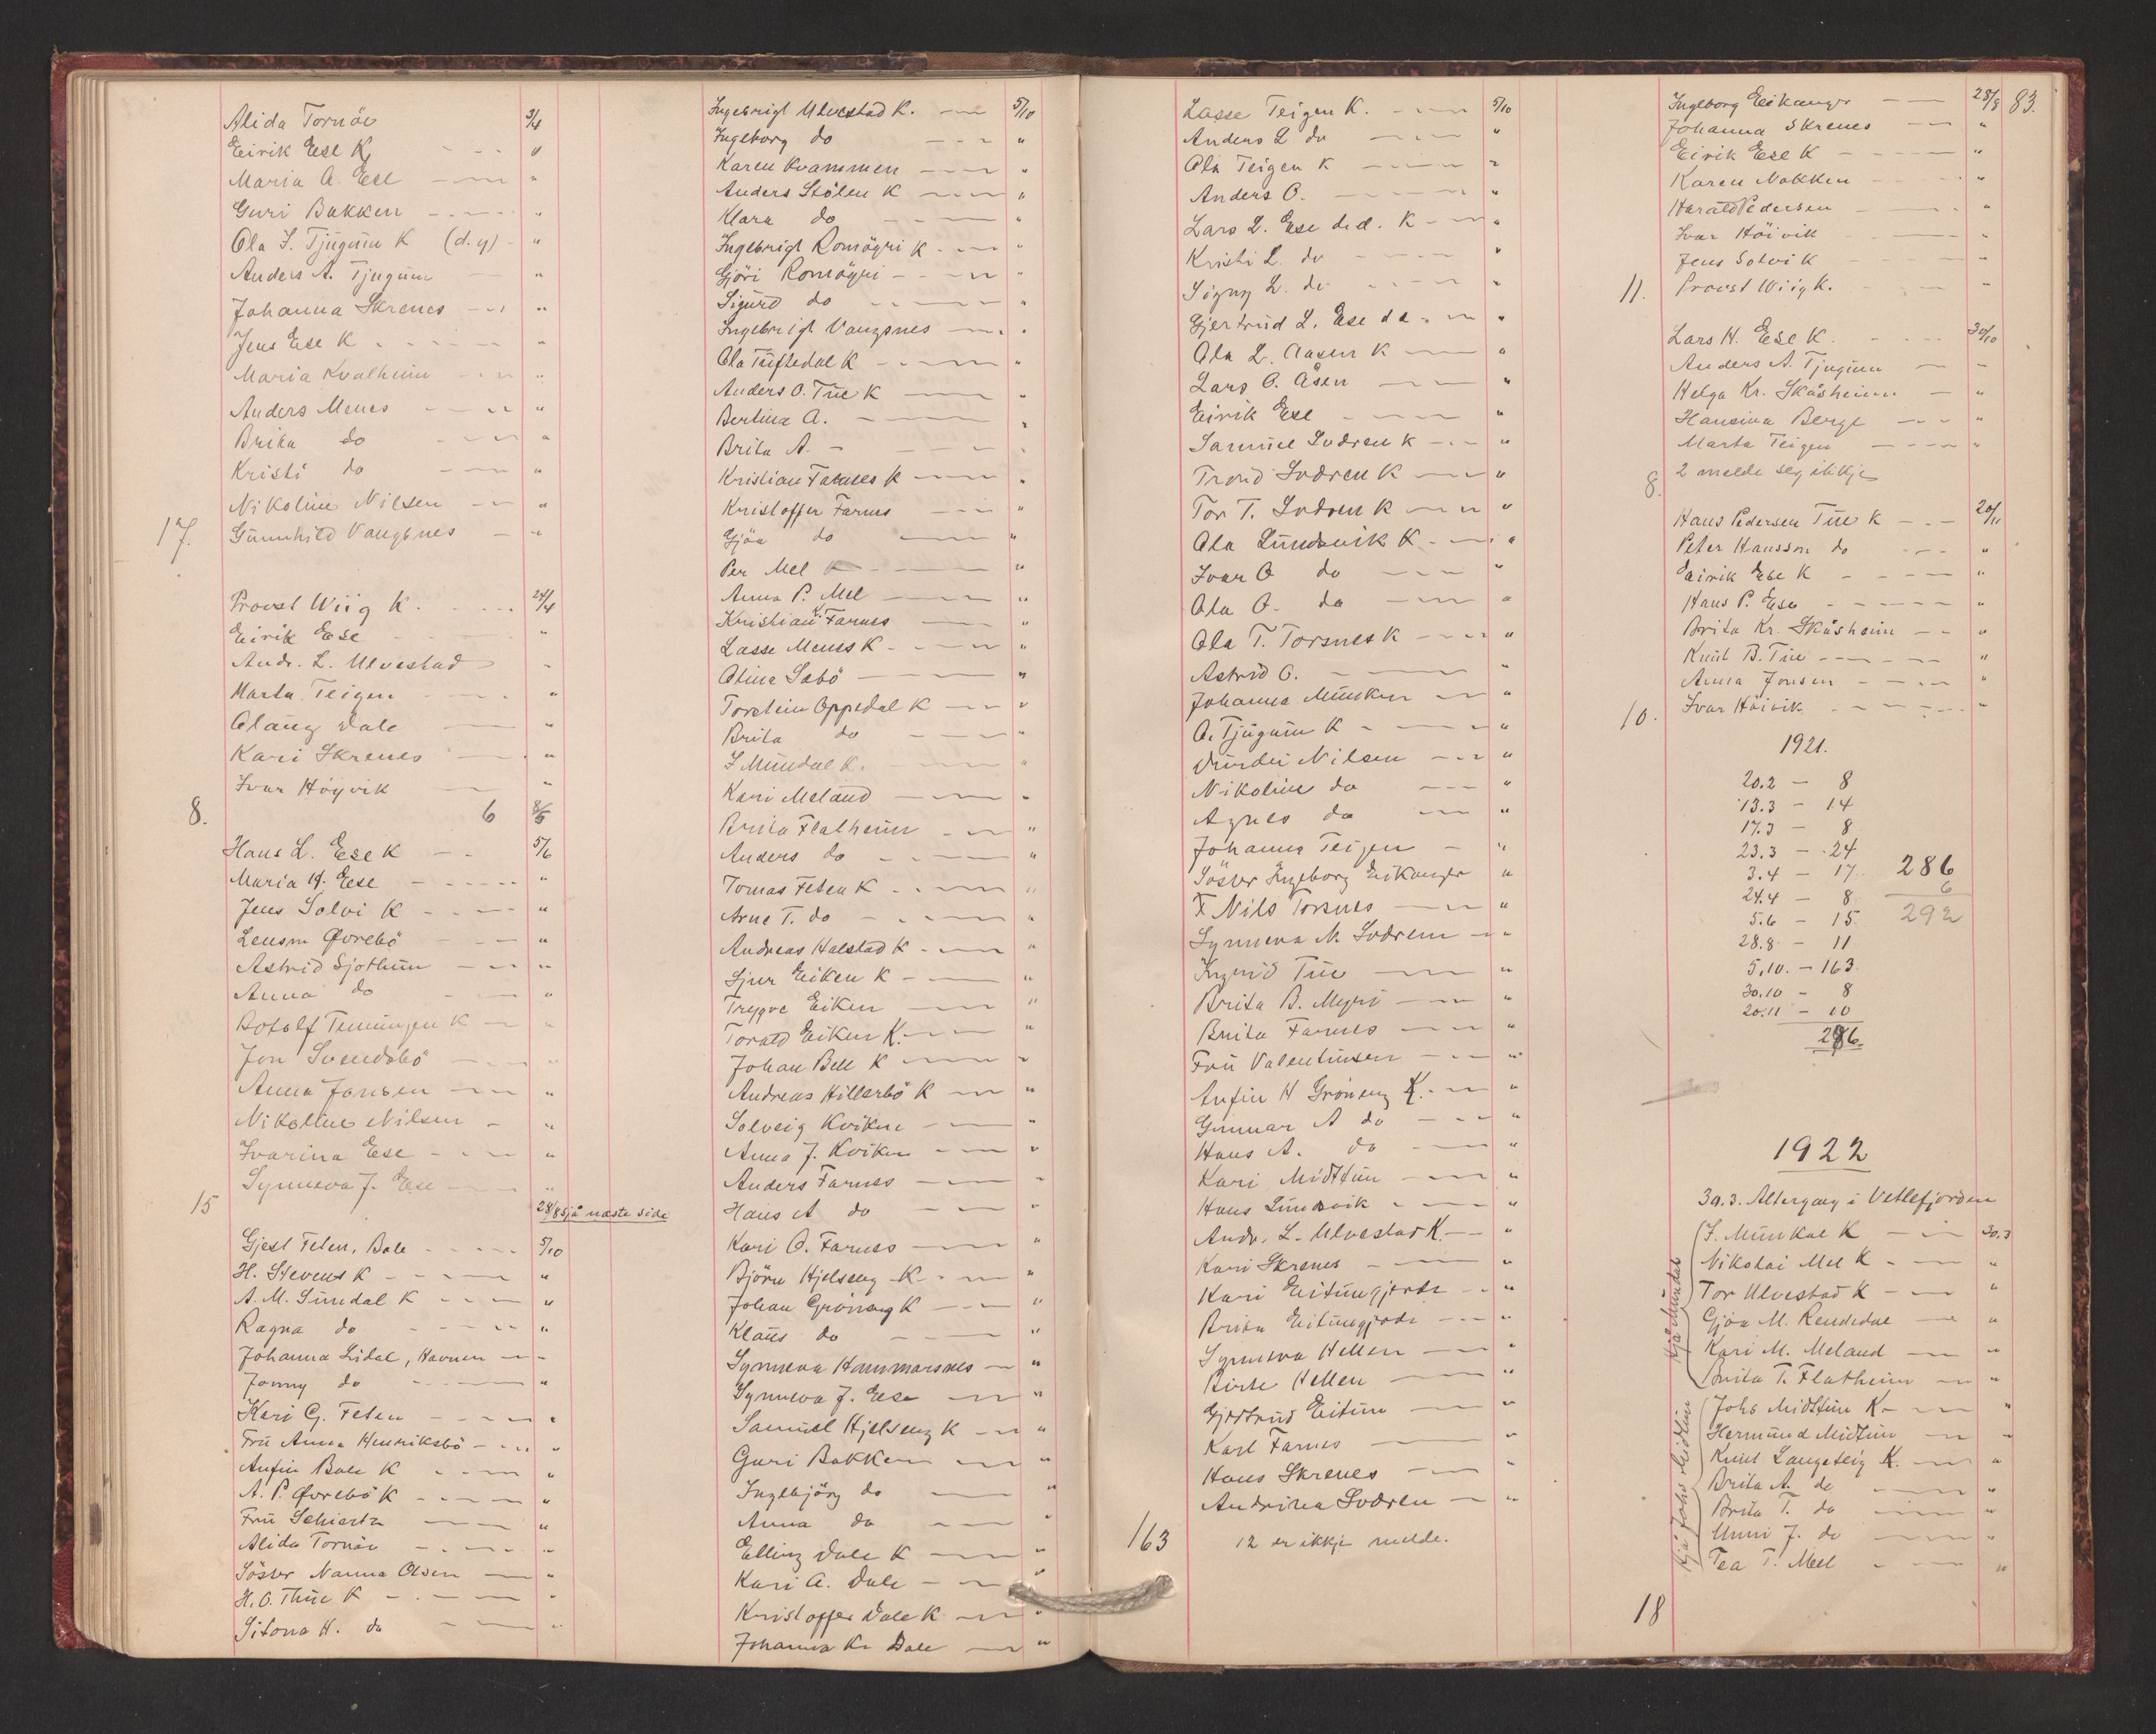 Alida Tornöe 3/4
Eirik Ese K "
Maria A. Ese "
Guri Bakken "
Ola S. Tjugum K (d.y) "
Anders A. Tjugum "
Johanna Skrenes "
Jens Ese K "
Maria Kvalheim "
Anders Menes "
Brita do "
Kristi do "
Nikoline Nilsen "
17. Gunnhild Vangsnes "
Provst Wiig K. 24/4
Eirik Ese "
Andr. L. Ulvestad "
Marta Teigen "
Olaug Dale "
Kari Skrenes "
Ivar Høyvik "
8. 6 8/5
Hans L. Ese K 5/6
Maria H. Ese "
Jens Solvi K "
Lensm Øvrebö "
Astrid Sjothun "
Anna do "
Botolf K "
Jon Svendsbö "
Anna Jonsen "
Nikoline Nilsen "
Ivarina Ese "
Synneva J. Ese "
15 28/8 sjå næste side
Gjest Feten, Bale 5/10
H. Stevens K "
A. M. Sundal K "
Ragna do "
Johanna Lidal, Havnen "
Jonny do "
Kari G. Feten "
Fru Anna Henriksbö "
Anfin Bale K "
A. P. Øvrebö K "
Fru Schiertz "
Alida Tornöe "
Söster Nanna Olsen "
H. O. Thue K "
H. do "
Ingebrigt Ulvestad K. 5/10
Ingeborg do "
Karen Kvammen "
Anders Stölen K "
Klara do "
Ingebrigt Romöyri K "
Gjöri Romöyri "
Sigurd do "
Ingebrigt Vangsnes "
Ola Tuftedal K "
Anders O. Tue K "
Bertina A. "
Brita A. "
Kristian Farnes K "
Kristoffer Farnes "
Gjöa do "
Per Mel K "
Anna P. Mel "
Kristian K. Farnes "
Lasse Menes K "
Olina Sabö "
Torstein Oppedal K "
Brita do "
J. Mundal K. "
Kari Meland "
Brita Flatheim "
Anders do "
Tomas Feten K "
Arne T. do "
Andreas Halstad K "
Sjur Eiken K "
Trygve Eiken "
Torald Eiken K. "
Johan Bell K "
Andreas Hillersbö K "
Solveig Kvikne "
Anna J. Kvikne "
Anders Farnes "
Hans A do "
Kari O. Farnes "
Björn Hjelseng K "
Johan Gröneng K "
Klaus do "
Synneva Hammarsnes "
Synneva J. Ese "
Samuel Hjelseng K "
Guri Bakken "
Ingebjörg do "
Anna do "
Elling Dale K "
Kari A. Dale "
Kristoffer Dale K "
Johanna Kr Dale "
Lasse Teigen K. 5/10
Anders L. do "
Ola Teigen K "
Anders O. "
Lars L. Ese d.e. K "
Kristi L. do "
Signy L. do "
Gjertrud L. Ese do "
Ola L. Aasen K "
Lars O. Åsen "
Eirik Ese "
Samuel Lodren K "
Trond Lodren K "
Tor T. Lodren K "
Ola Lundvik K "
Ivar O do "
Ola O. do "
Ola T. Torsnes K "
Astrid O. "
Johanna Munken "
O. Tjugum K "
Nilsen "
Nikoline do "
Agnes do "
Johanna Teigen "
Söster Ingeborg Eikanger "
F Nils Torsnes "
Synneva M. Lodren "
Ingrid Tue "
Brita B. Myri "
Brita Farnes "
Fru Valentinsen "
Anfin H Gröneng K. "
Gunnar A do "
Hans A. do "
Kari Midttun "
Hans Lundvik "
Andr. L. Ulvestad K. "
Kari Skrenes "
Kari Eitungjerde "
Brita Eitungjerde "
Synneva Hellen "
Birte Hellen "
Gjertrud Eitun "
Karl Farnes "
Hans Skrenes "
Andrina Lodren "
163 12 er ikkje melde.
Ingeborg Eikanger 28/8 83.
Johanna Skrenes "
Eirik Ese K "
Karen Nokken "
Harald Pedersen "
Ivar Höivik "
Jens Solvi K "
11. Provst Wiig K. "
Lars H. Ese K. 30/10
Anders A. Tjugum "
Helga Kr. Skåsheim "
Hansina Berge "
Marta Teigen "
8. 2 melde seg ikkje
Hans Pedersen Tue K 20/11
Peter Hansson do "
Eirik Ese K "
Hans P. Ese "
Brita Kr. Skåsheim "
Knut B. Tue "
Anna Jonsen "
10. Ivar Höivik "
1921.
20.2 - 8
13.3 - 14
17.3 - 8
23.3 - 24
3.4 - 17. 286
24.4 - 8 6
5.6 - 15. 292
28.8 - 11
5.10. - 163
30.10 - 8
20.11 - 10
286.
1922
30.3. Altergang i Vetlefjorden
Hjå Mundal
J. Munkal K 30.3
Nikolai Mel K "
Tor Ulvestad K "
Gjöa M. Rendedal "
Kari M. Meland "
Brita T. Flatheim "
Hjå Johs Midttun
Johs Midttun K "
Hermund Midtun "
Knut Langeteig K. "
Brita A. do "
Brita T. do "
Unni J. do "
Tea T. Mel "
18